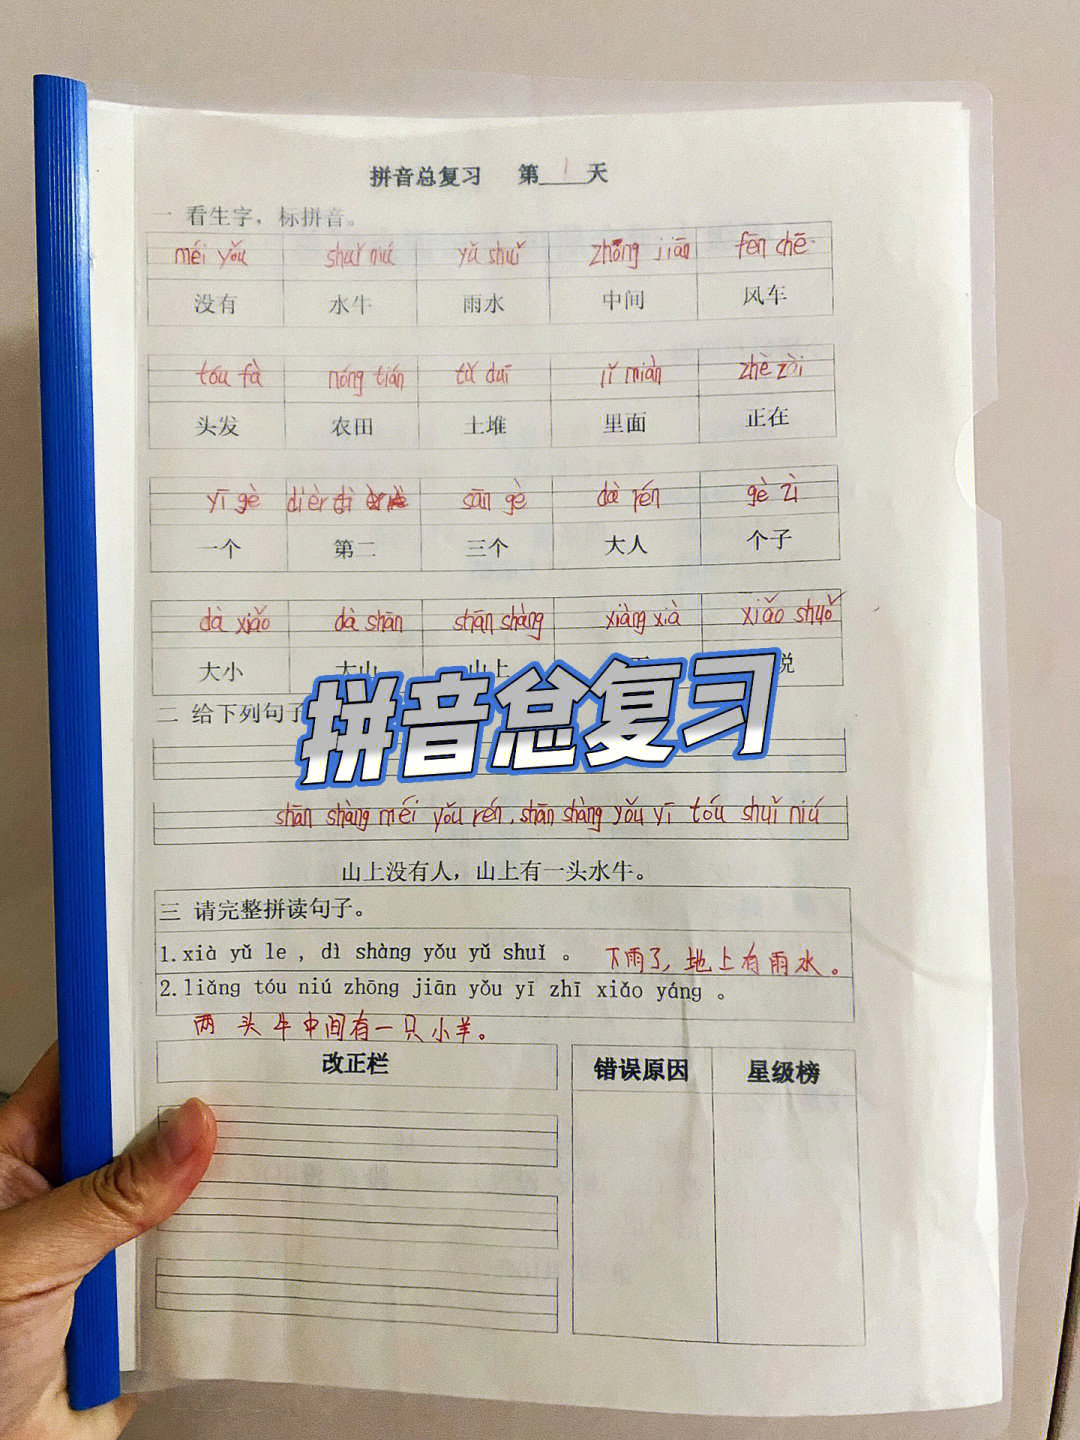 拼音总复习 第1天
一 看生字，标拼音。
méi yǒu shuǐ niú yǔ shuǐ zhōng jiān fēn chē
没有 水牛 雨水 中间 风车
tóu fà nóng tián tǔ duī lǐ miàn zhè zài
头发 农田 土堆 里面 正在
yī gè dì èr sān gè dà rén gè zi
一个 第二 三个 大人 个子
dà xiǎo dà shān shān shàng xiàng xià xiǎo shuō
大小 大山 山上 下 说
拼音总复习
二 给下列句子
shān shàng méi yǒu rén, shān shàng yǒu yī tóu shuǐ niú
山上没有人，山上有一头水牛。
三 请完整拼读句子。
1.xià yǔ le , dì shàng yǒu yǔ shuǐ 。 下雨了，地上有雨水。
2.liǎng tóu niú zhōng jiān yǒu yī zhī xiǎo yáng 。
两头牛中间有一只小羊。
改正栏 错误原因 星级榜